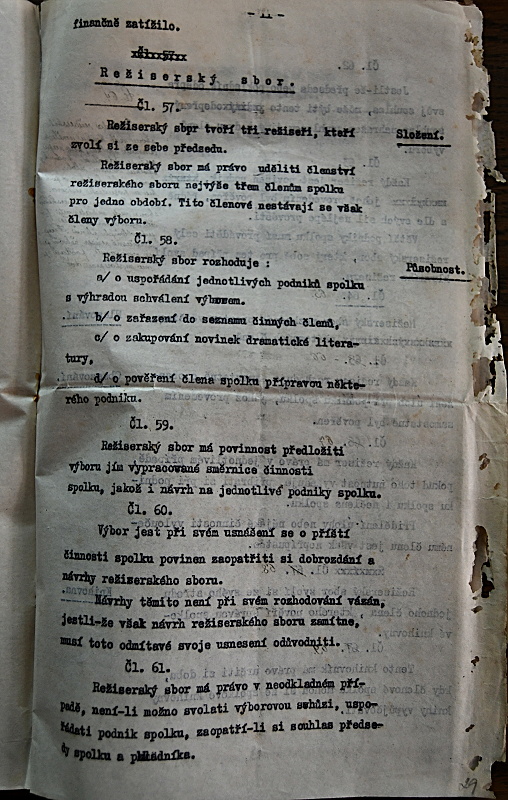 - 11 -
finančně zatížilo.
Čl. 57.
Režiserský sbor.
Čl. 57.
Režiserský sbor tvoří tři režiseři, kteří
Složení.
zvolí si ze sebe předsedu.
Režiserský sbor má právo uděliti členství
režiserského sboru nejvýše třem členům spolku
pro jedno období. Tito členové nestávají se však
členy výboru.
Čl. 58.
Režiserský sbor rozhoduje :
Působnost.
a/ o uspořádání jednotlivých podniků spolku
s výhradou schválení výborem.
b/ o zařazení do seznamu činných členů,
c/ o zakupování novinek dramatické litera-
tury,
d/ o pověření člena spolku přípravou někte-
rého podniku.
Čl. 59.
Režiserský sbor má povinnost předložiti
výboru jím vypracované směrnice činnosti
spolku, jakož i návrh na jednotlivé podniky spolku.
Čl. 60.
Výbor jest při svém usnášení se o příští
činnosti spolku povinen zaopatřiti si dobrozdání a
návrhy režiserského sboru.
Návrhy těmito není při svém rozhodování vázán,
jestli-že však návrh režiserského sboru zamítne,
musí toto odmítavé svoje usnesení odůvodniti.
Čl. 61.
Režiserský sbor má právo v neodkladném pří-
padě, není-li možno svolati výborovou schůzi, uspo-
řádati podnik spolku, zaopatří-li si souhlas předse-
dy spolku a
29